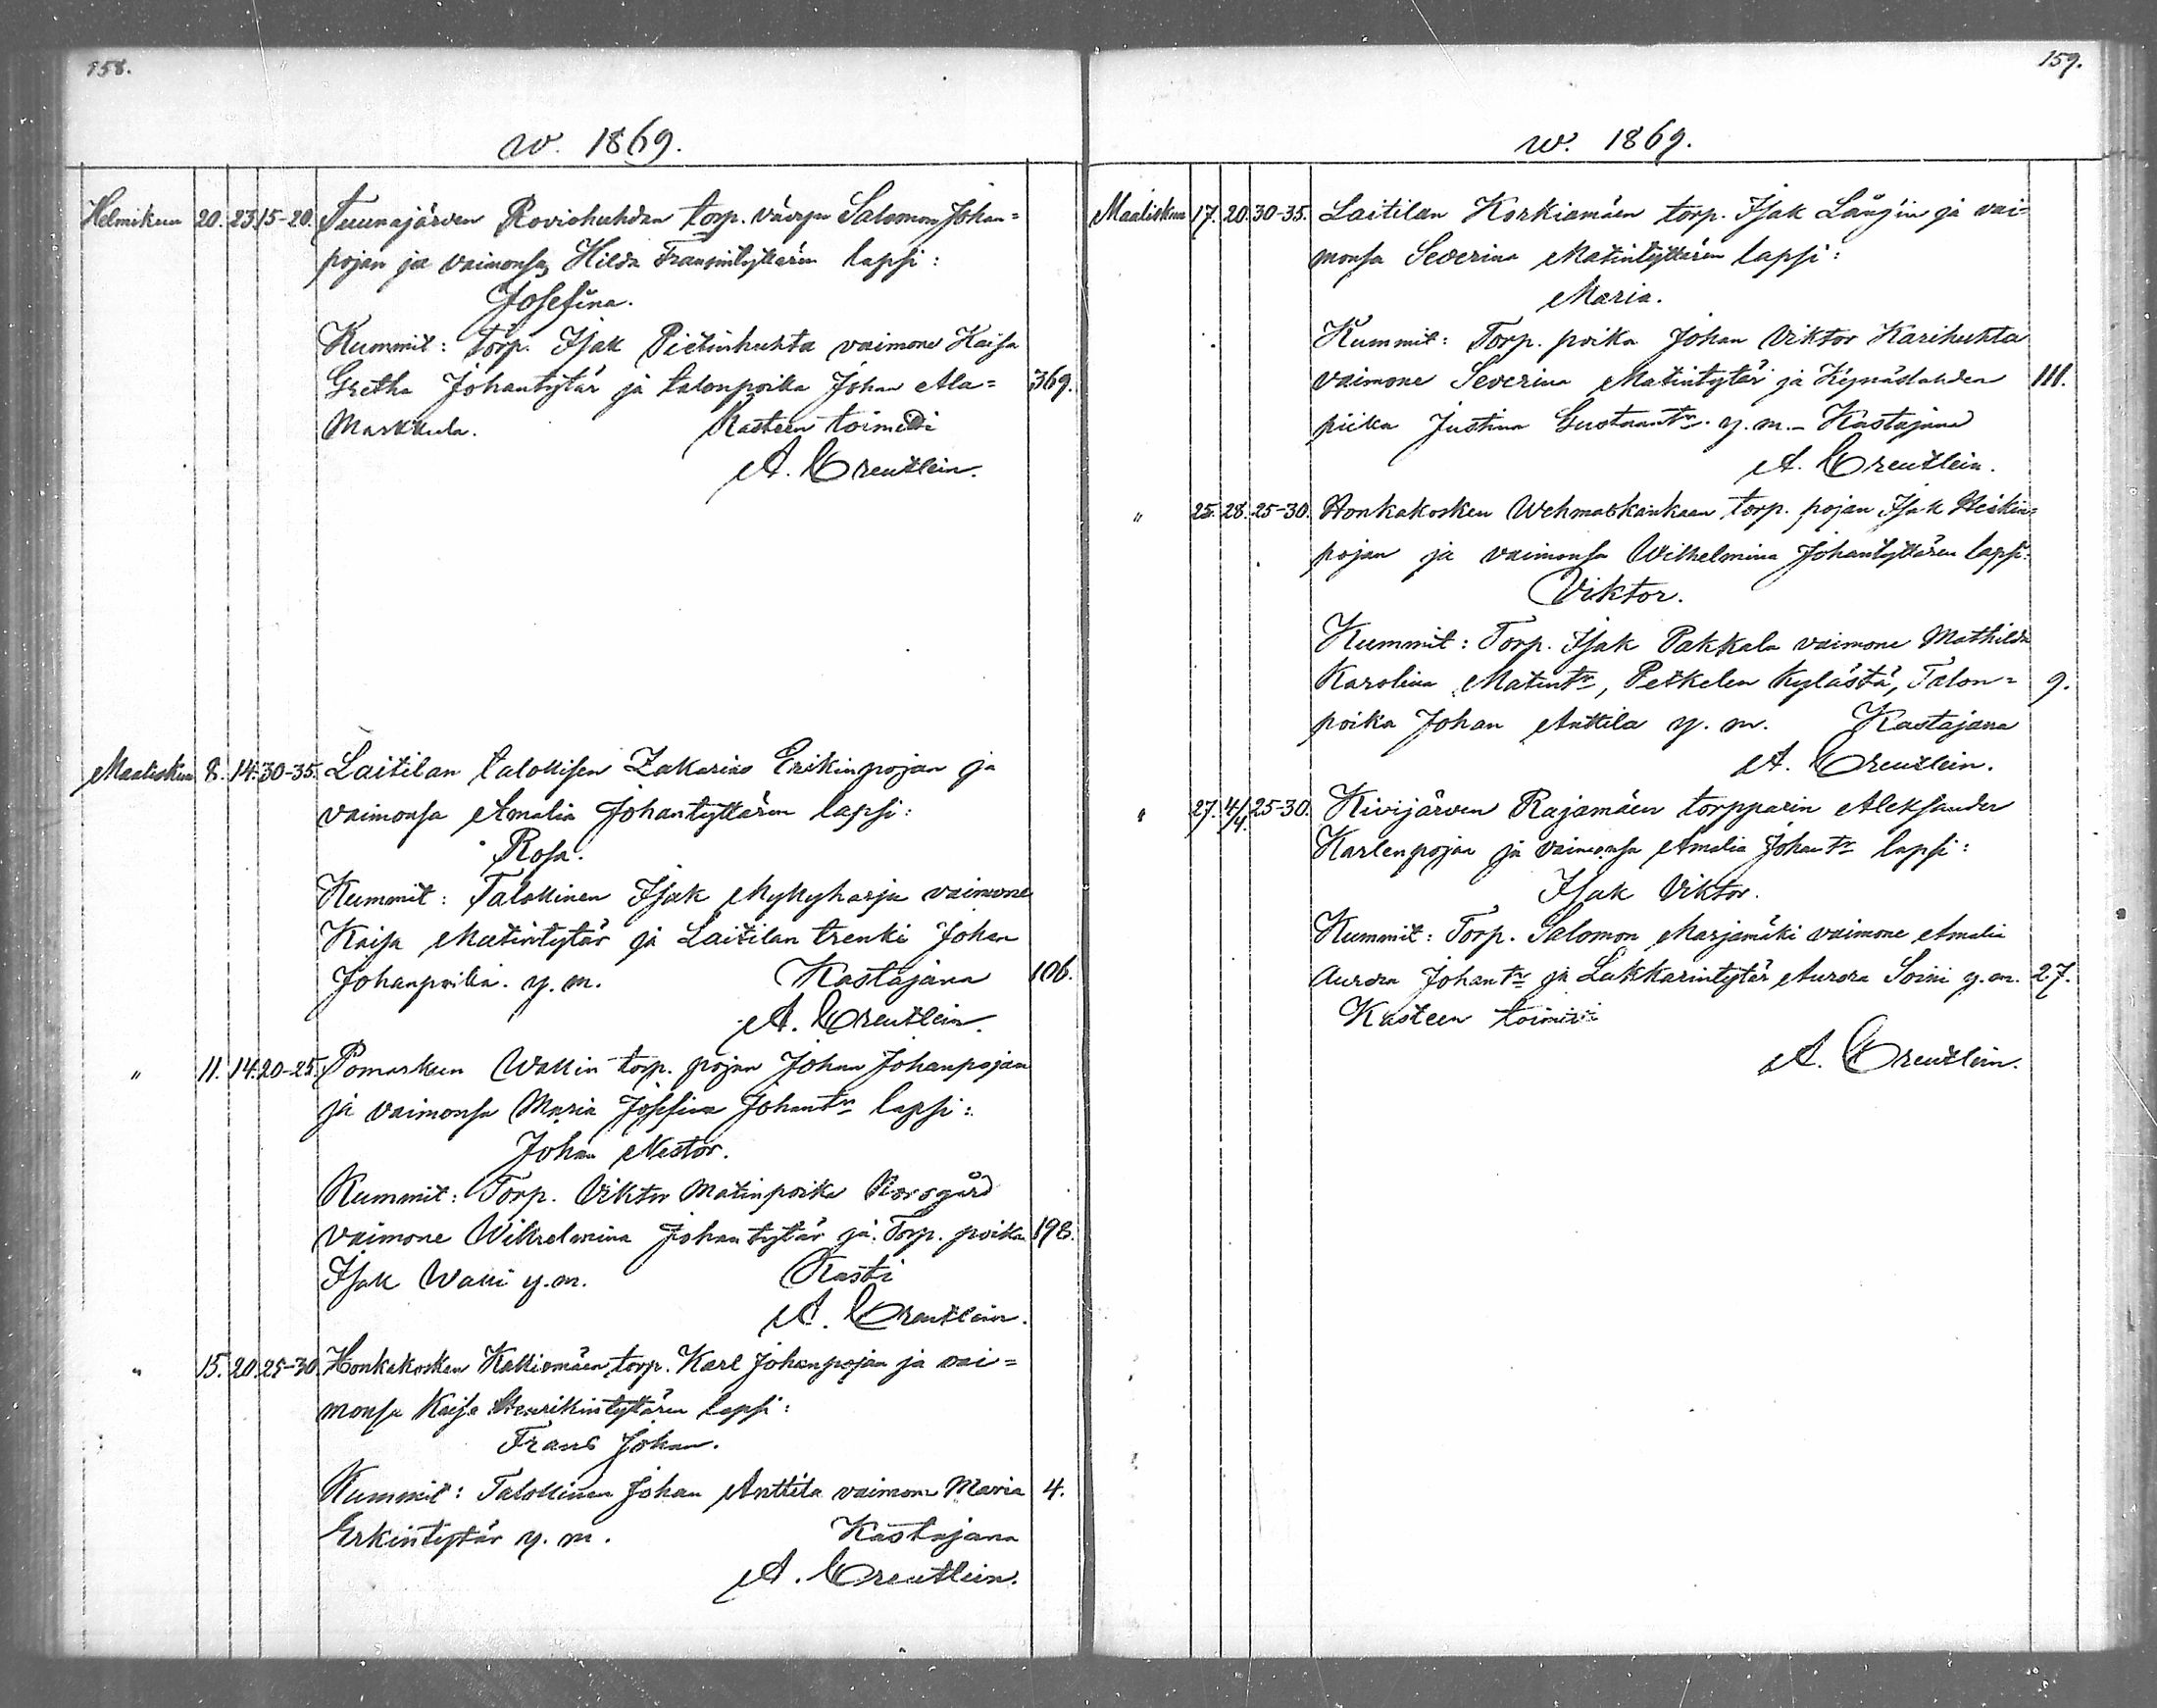 158.
w. 1869.
Helmikuu 20. 23. 15-20. Tuunajärven Roviohuhdan torp. vävyn Salomon Johan=
pojan ja vaimonsa Hilda Fransintyttären lapsi:
Josefina.
Kummit: torp. Isak Pietinhuhta vaimone Kaisa
Gretha Johantytär ja talonpoika Johan Ala= 369.
Markkula. Kasteen toimitti
A. Creutlein.
Maaliskuu 8. 14. 30-35. Laitilan talollisen Zakarias Erikinpojan ja
vaimonsa Amalia Johantyttären lapsi:
Rosa.
Kummit: Talollinen Isak Mykyharju vaimone
Kaisa Matintytär ja Laitilan trenki Johan
Johanpoika. y. m. Kastajana 106.
A. Creutlein.
" 11. 14. 20-25. Pomarkun Wallin torp. pojan Johan Johanpojan
ja vaimonsa Maria Josefina Johantr lapsi:
Johan Nestor.
Kummit: Torp. Viktor Matinpoika Korsgård
vaimone Wilhelmina Johantytär ja Torp. poika 198.
Isak Walli y. m. Kasti
A. Creutlein.
" 15. 20. 25-30. Honkakosken Kalliomäen torp. Karl Johanpojan ja vai=
monsa Kaisa Henrikintyttären lapsi:
Frans Johan.
Kummit: Talollinen Johan Anttila vaimone Maria 4.
Erkintytär y. m. Kastajana
A. Creutlein.
159.
w. 1869.
Maaliskuu 17. 20. 30-35. Laitilan Korkiamäen torp. Isak Lång'in ja vai=
monsa Severina Matintyttären lapsi:
Maria.
Kummit: Torp. poika Johan Viktor Karihuhta
vaimone Severina Matintytär ja 111.
piika Justina Gustaantr. y. m. - Kastajana
A. Creutlein.
" 25. 28. 25-30. Honkakosken Wehmaskankaan torp. pojan Isak Heikin=
pojan ja vaimonsa Wilhelmina Johantyttären lapsi:
Viktor.
Kummit: Torp. Isak Pakkala vaimone Mathilda
Karolina Matintr, Petkelen kylästä, Talon= 9.
poika Johan Anttila y. m. Kastajana
A. Creutlein.
" 27. 4/4. 25-30. Kivijärven Rajamäen torpparin Aleksander
Karlenpojan ja vaimonsa Amalia Johantr lapsi:
Isak Viktor.
Kummit: Torp. Salomon Marjamäki vaimone Amalia
Aurora Johantr ja Lukkarintytär Aurora Soini y. m. 27.
Kasteen toimitti
A. Creutlein.